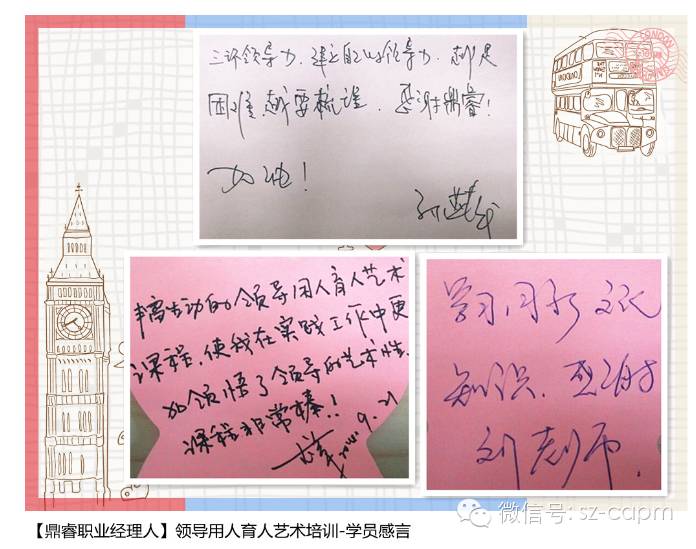 三环领导力、建立自心领导力,越是
困难越要梳理,感谢鼎睿!
加油!
丰富生动的领导用人育人艺术
课程,使我在实践工作中更
加领悟了领导的艺术性.
课程非常棒!!
9.21
学习
知识,感谢
刘老师.
LONDON
微信号: sz-capm
【鼎睿职业经理人】领导用人育人艺术培训-学员感言